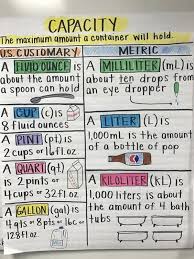 CAPACITY
The maximum amount a container will hold.
U.S. CUSTOMARY
A FLUID OUNCE is
about the amount
a spoon can hold
A CUP (c) is
8 fluid ounces
A PINT (pt) is
2 cups or 16 fl.oz.
A QUART (qt)
is 2 pints or
4 cups or 32 fl.oz.
A GALLON (gal) is
4 qts or 8 pts or 16c or
128 fl.oz.
METRIC
A MILLILITER (mL) is
about ten drops from
an eye dropper
A LITER (L) is
1,000 mL is the amount
of a bottle of pop
A KILOLITER (kL) is
1,000 liters is about
the amount of 4 bath
tubs